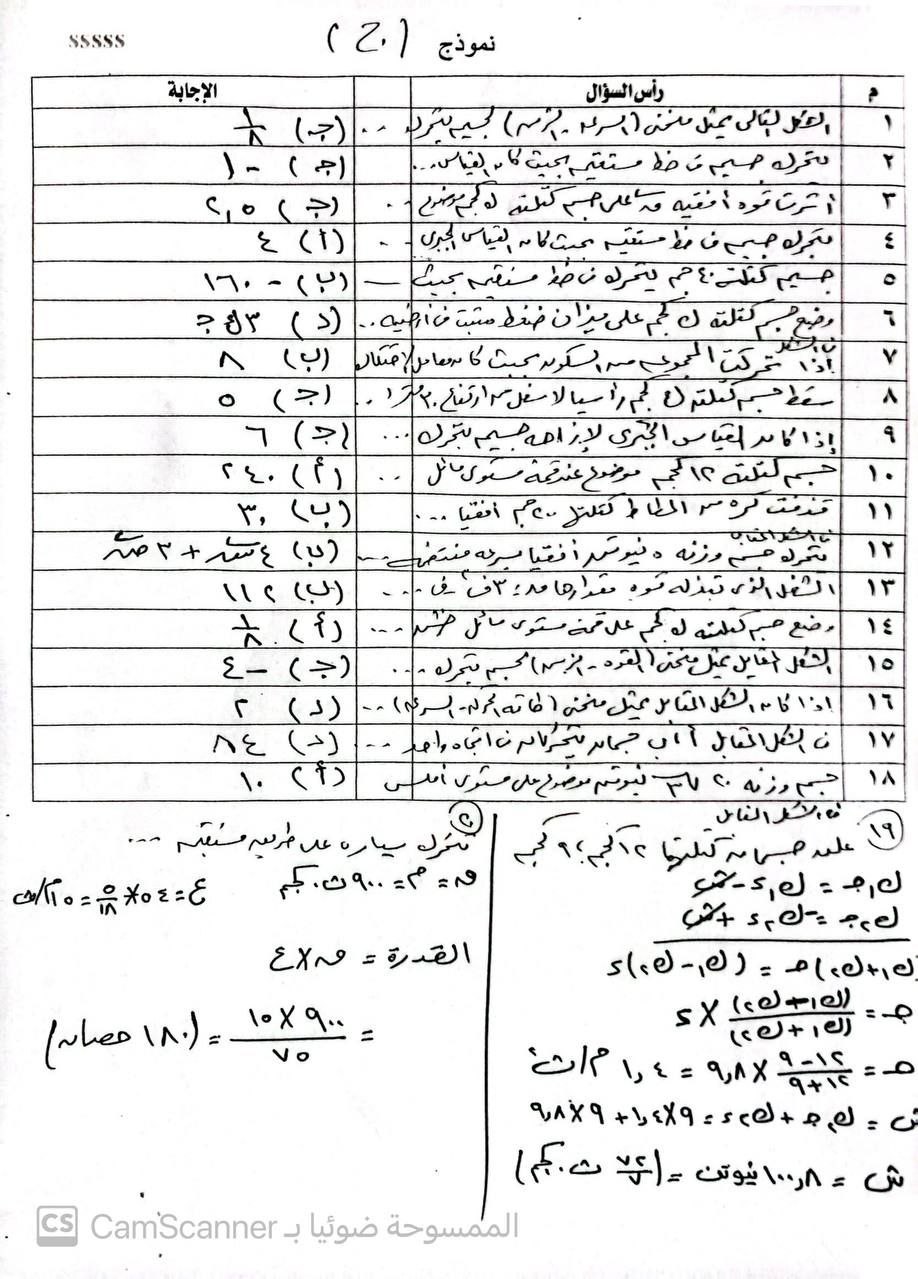 sssss
نموذج (ج)
م رأس السؤال الإجابة
١ الشكل التالى يمثل منحنى (السرعة - الزمن) لجسيم يتحرك .. (جـ) ١/٨
٢ يتحرك جسيم فى خط مستقيم بحيث كان القياس... (جـ) -١
٣ أثرت قوة أفقية على جسم كتلته ك كجم موضوع .. (جـ) ٢,٥
٤ يتحرك جسيم فى خط مستقيم بحيث كان القياس الجبرى .. (أ) ٤
٥ جسيم كتلته ٤٠ جم يتحرك فى خط مستقيم بحيث — (ب) -١٦٠
٦ وضع جسم كتلته ك كجم على ميزان ضغط مثبت فى أرضية .. (د) ٣
٧ فى الشكل إذا تحركت المجموعة من السكون بحيث كان معامل الاحتكاك (ب) ٨
٨ سقط جسم كتلته ك كجم رأسيا لأسفل من ارتفاع ٣٠ مترا .. (جـ) ٥
٩ إذا كان القياس الجبرى لإزاحة جسيم يتحرك ... (جـ) ٦
١٠ جسم كتلته ١٢ كجم موضوع عند قمة مستوى مائل .. (أ) ٢٤٠
١١ قذفت كرة من المطاط كتلتها ٢٠٠ جم أفقيا ... (ب) ٣٠
١٢ فى الشكل المقابل يتحرك جسم وزنه ٥ نيوتن أفقيا بسرعة منتظمة ... (ب) ٤ سَ + ٣ صَ
١٣ الشغل الذى تبذله قوة مقدارها ... (ب) ١١٢
١٤ وضع جسم كتلته ك كجم على قمة مستوى مائل خشن ... (أ) ١/٨
١٥ الشكل المقابل يمثل منحنى (القوة - الزمن) لجسم يتحرك ... (جـ) -٤
١٦ إذا كان الشكل المقابل يمثل منحنى (طاقة الحركة - السرعة) .. (د) ٢
١٧ فى الشكل المقابل أ، ب جسمان يتحركان فى اتجاه واحد ... (د) ٤٨
١٨ جسم وزنه ٢٠ نيوتن موضوع على مستوى أملس (أ) ١٠
فى الشكل المقابل
١٩ علق جسمان كتلتهما ١٢ كجم، ٩ كجم
ك١جـ = ك١ء - ش
ك٢جـ = -ك٢ء + ش
(ك١+ك٢)جـ = (ك١-ك٢)ء
جـ = (ك١-ك٢)/(ك١+ك٢) × ء
جـ = (١٢-٩)/(١٢+٩) × ٩,٨ = ١,٤ م/ث٢
ش = ك٢جـ + ك٢ء = ٩×١,٤ + ٩×٩,٨
ش = ١٠٠,٨ نيوتن = (٧٢/٧ ث.كجم)
٢٠ تتحرك سيارة على طريق مستقيم ...
ق = م = ٩٠٠ ث.كجم ع = ٥٤ × ٥/١٨ = ١٥ م/ث
القدرة = ق × ع
= (٩٠٠ × ١٥)/٧٥ = (١٨٠ حصان)
CS CamScanner الممسوحة ضوئيا بـ